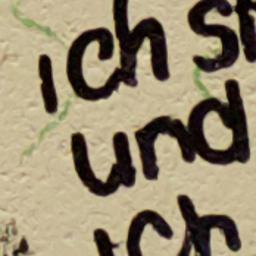 ich st
und
ich